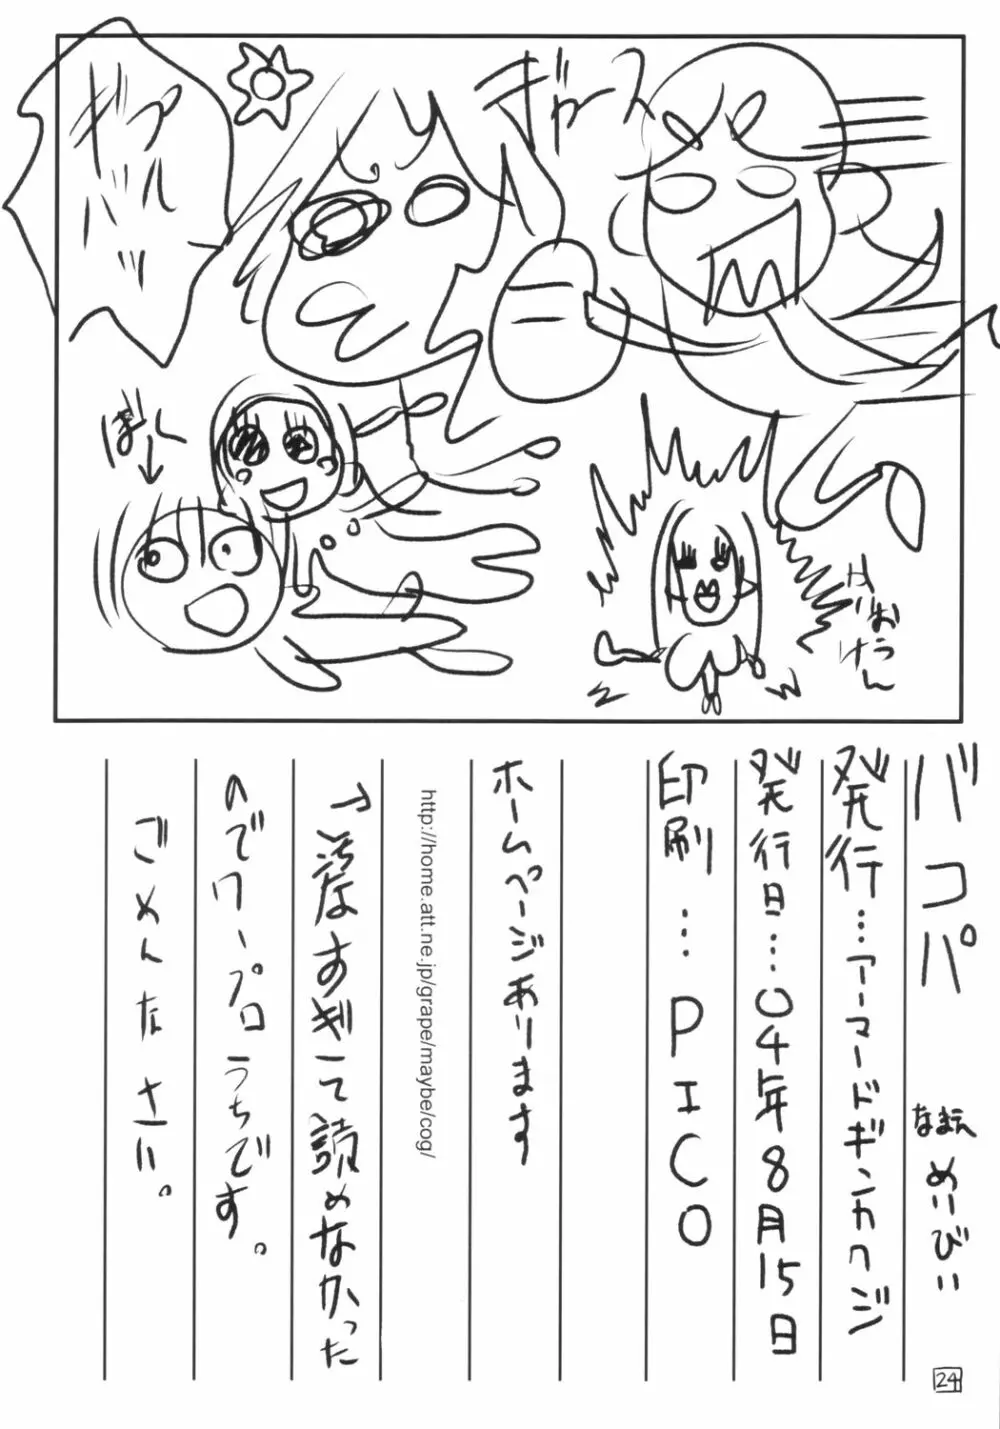 ギャース
ぎゃ
ハルッ
ばーん
かいおうけん
バコパ
なまえ めいびい
発行…アーマードギンガフジ
発行日…04年8月15日
印刷…PICO
ホームページあります
http://home.att.ne.jp/grape/maybe/cog/
↑汚なすぎて読めなかった
のでワープロうちです。
ごめんなさい。
24